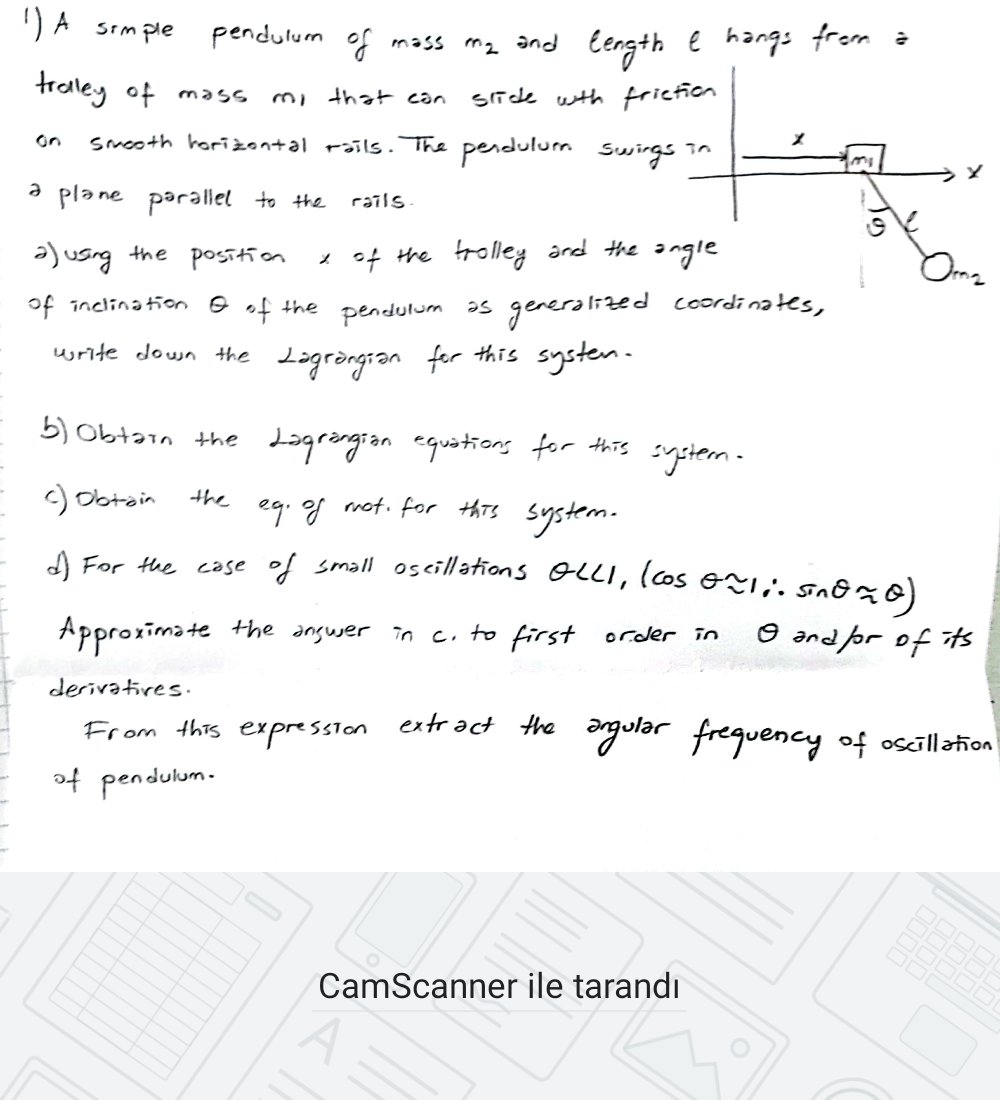 1) A simple pendulum of mass m₂ and length l hangs from a
trolley of mass m₁ that can slide wth friction
on smooth horizontal rails. The pendulum swings in
a plane parallel to the rails.
x
m₁
x
θ
l
m₂
a) using the position x of the trolley and the angle
of inclination θ of the pendulum as generalized coordinates,
write down the Lagrangian for this system.
b) Obtain the Lagrangian equations for this system.
c) Obtain the eq. of mot. for this system.
d) For the case of small oscillations θ<<1, (cos θ≈1 ∴ sinθ≈θ)
Approximate the answer in c. to first order in θ and/or of its
derivatives.
From this expression extract the angular frequency of oscillation
of pendulum.
CamScanner ile tarandı